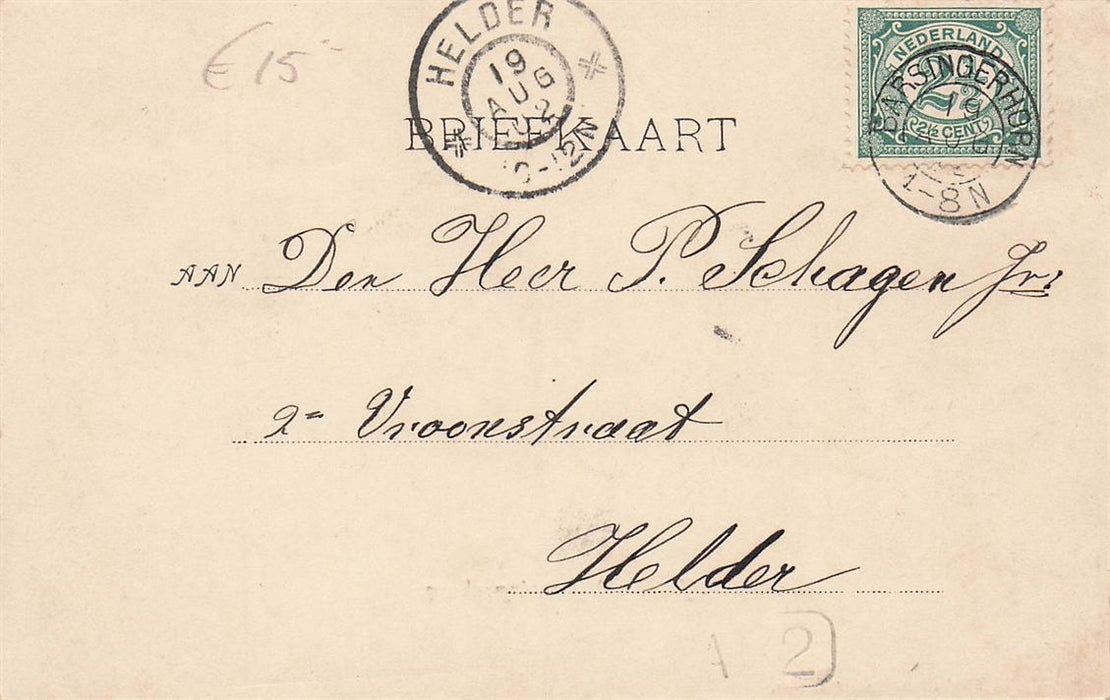 € 15-
HELDER
19
AUG
10-12N
NEDERLAND
2½
2½ CENT
BARSINGERHORN
19
AUG
1-8N
BRIEFKAART
AAN Den Heer P. Schagen Jr:
2e Vroonstraat
Helder
A 2